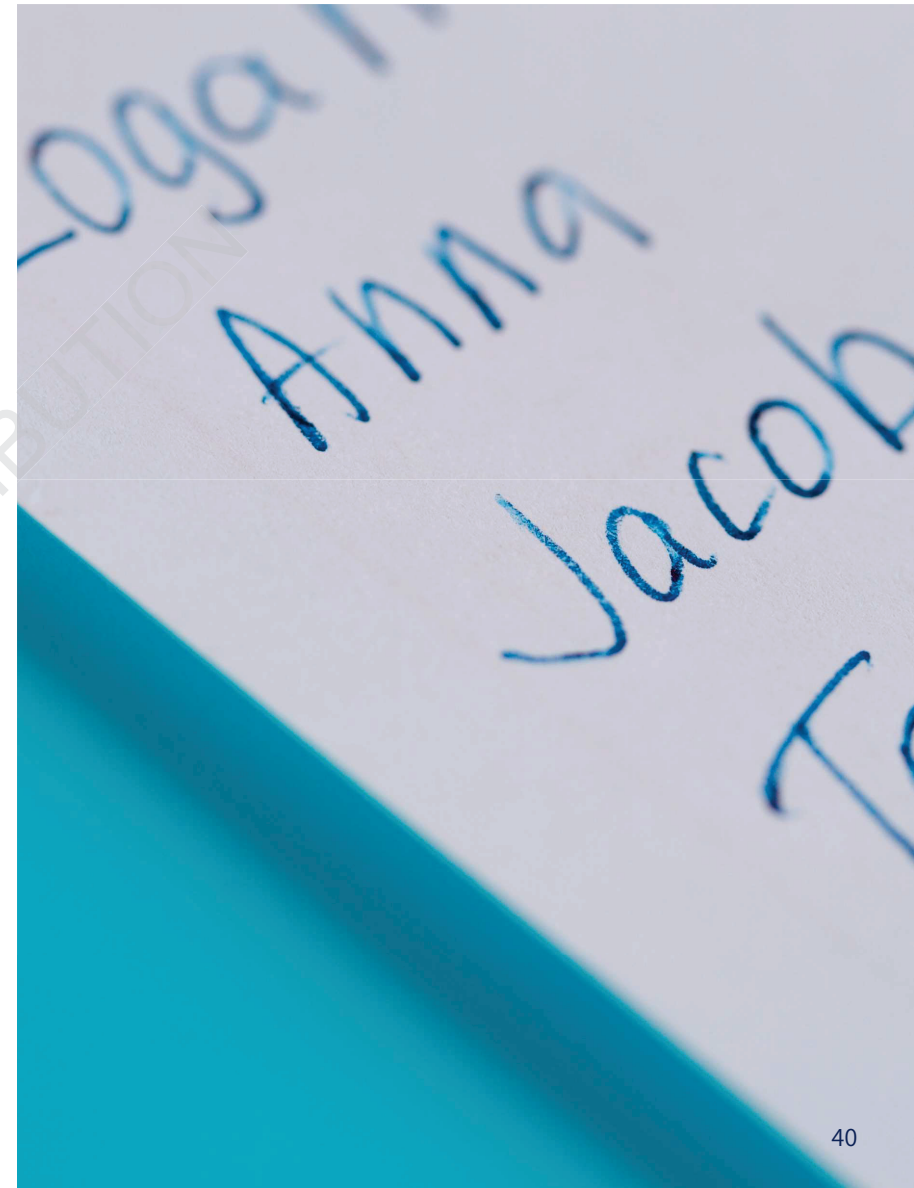 Logan
Anna
Jacob
40